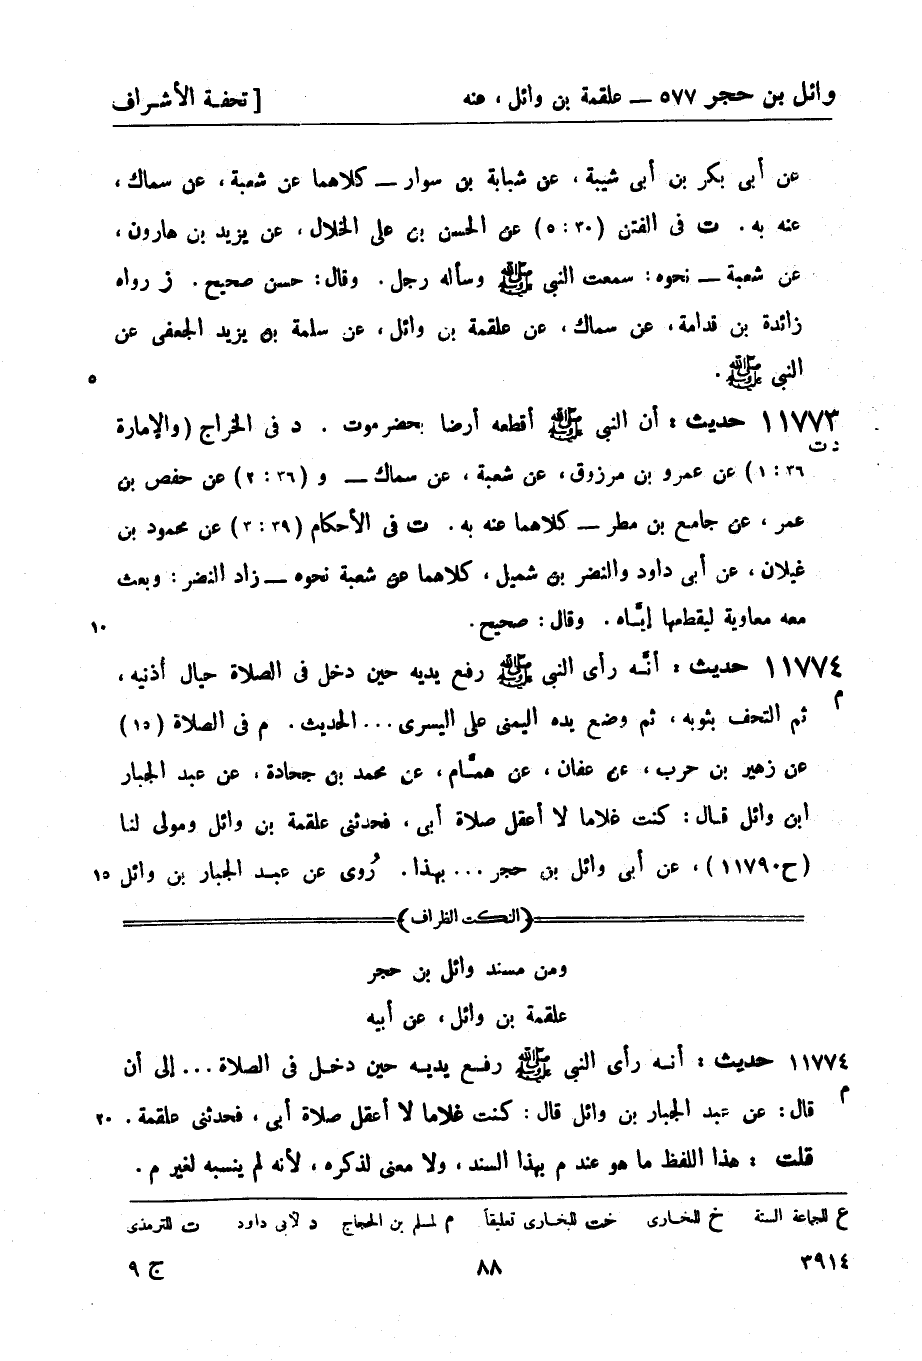 وائل بن حجر ٥٧٧ — علقمة بن وائل ، عنه [ تحفـة الأشـراف
عن أبى بكر بن أبى شيبة ، عن شبابة بن سوار — كلاهما عن شعبة ، عن سماك ،
عنه به . ت فى الفتن (٣٠ : ٥) عن الحسن بن على الخلال ، عن يزيد بن هارون ،
عن شعبة — نحوه : سمعت النبى ﷺ وسأله رجل . وقال : حسن صحيح . ز رواه
زائدة بن قدامة ، عن سماك ، عن علقمة بن وائل ، عن سلمة بن يزيد الجعفى عن
النبى ﷺ . ٥
١١٧٧٣ حديث : أن النبى ﷺ أقطعه أرضا بحضرموت . د فى الخراج (والإمارة
د ت
٣٦ : ١) عن عمرو بن مرزوق ، عن شعبة ، عن سماك — و (٣٦ : ٢) عن حفص بن
عمر ، عن جامع بن مطر — كلاهما عنه به . ت فى الأحكام (٣٩ : ٣) عن محمود بن
غيلان ، عن أبى داود والنضر بن شميل ، كلاهما عن شعبة نحوه — زاد النضر : وبعث
معه معاوية ليقطعها إيَّاه . وقال : صحيح . ١٠
١١٧٧٤ حديث : أنَّـه رأى النبى ﷺ رفع يديه حين دخل فى الصلاة حيال أذنيه ،
م
ثم التحف بثوبه ، ثم وضع يده اليمنى على اليسرى . . . الحديث . م فى الصلاة (١٥)
عن زهير بن حرب ، عن عفان ، عن همَّام ، عن محمد بن جحادة ، عن عبد الجبار
ابن وائل قـال : كنت غلاما لا أعقل صلاة أبى ، فحدثنى علقمة بن وائل ومولى لنا
(ح ١١٧٩٠) ، عن أبى وائل بن حجر . . . بهذا . رُوى عن عبـد الجبار بن وائل ١٥
(النكت الظراف)
ومن مسند وائل بن حجر
علقمة بن وائل ، عن أبيه
١١٧٧٤ حديث : أنـه رأى النبى ﷺ رفـع يديـه حين دخـل فى الصلاة . . . إلى أن
م
قال : عن عبد الجبار بن وائل قال : كنت غلاما لا أعقل صلاة أبى ، فحدثنى علقمة . ٢٠
قلت : هذا اللفظ ما هو عند م بهذا السند ، ولا معنى لذكره ، لأنه لم ينسبه لغير م .
ع للجماعة الستة خ للبخارى خت للبخارى تعليقاً م لمسلم بن الحجاج د لأبى داود ت للترمذى
٣٩١٤ ٨٨ ج ٩